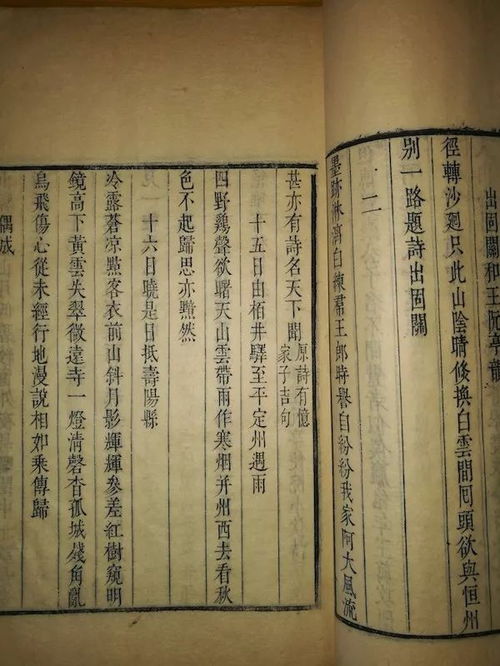 出固關和王阮亭韻
徑轉沙廻只此山陰晴倏換白雲間囘頭欲與恒州
別一路題詩出固關
二
墨跡淋漓白練帬王郎時譽自紛紛我家阿大風流
甚亦有詩名天下聞原詩有憶家子吉句
十五日由栢井驛至平定州遇雨
四野鷄聲欲曙天山雲帶雨作寒烟并州西去看秋
色不起歸思亦黯然
十六日曉是日抵壽陽縣
冷露蒼凉㸃客衣前山斜月影輝輝參差紅樹窺明
鏡高下黃雲失翠微遠寺一燈清磬杳孤城殘角亂
烏飛傷心從未經行地漫說相如乘傳歸
偶成